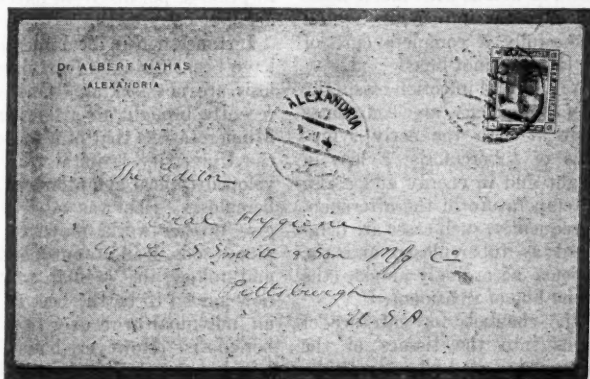 Dr. ALBERT NAHAS
ALEXANDRIA
ALEXANDRIA
The Editor
Oral Hygiene
c/o Lee S. Smith & Son Mfg Co
Pittsburgh
U.S.A.